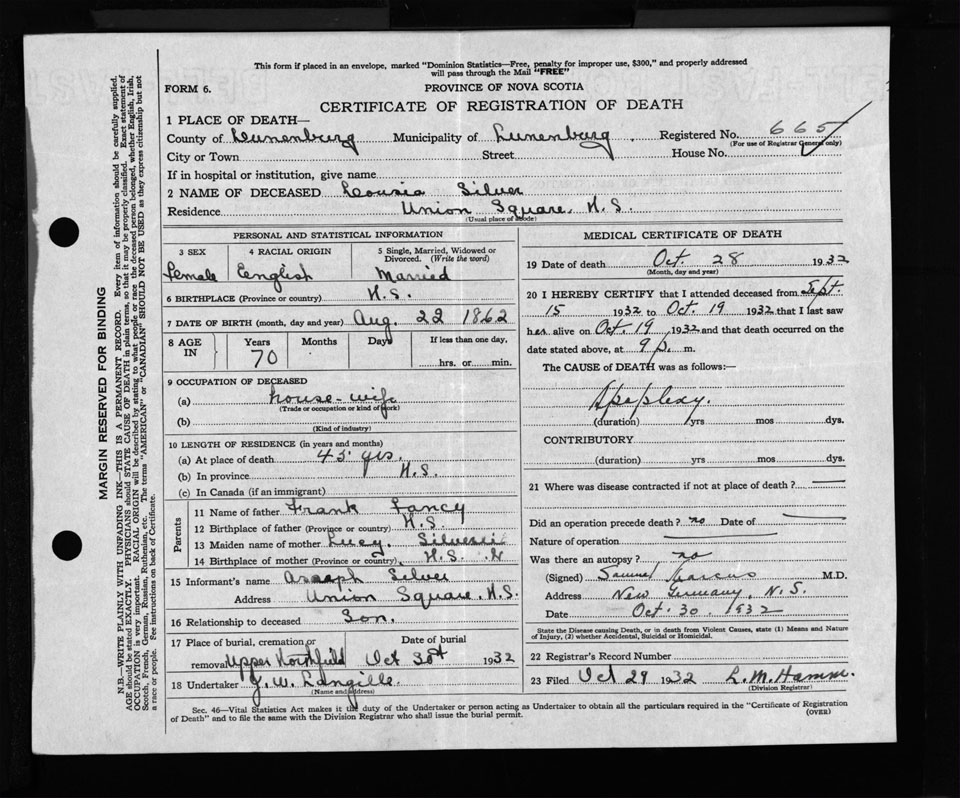 This form if placed in an envelope, marked "Dominion Statistics—Free, penalty for improper use, $300," and properly addressed
will pass through the Mail "FREE"
FORM 6.
PROVINCE OF NOVA SCOTIA
CERTIFICATE OF REGISTRATION OF DEATH
1 PLACE OF DEATH—
County of Lunenburg Municipality of Lunenburg Registered No. 665
(For use of Registrar General only)
City or Town Street House No.
If in hospital or institution, give name
2 NAME OF DECEASED Silver
Residence Union Square, N.S.
(Usual place of abode)
PERSONAL AND STATISTICAL INFORMATION
3 SEX 4 RACIAL ORIGIN 5 Single, Married, Widowed or Divorced. (Write the word)
Female English Married
6 BIRTHPLACE (Province or country) N.S.
7 DATE OF BIRTH (month, day and year) Aug. 22 1862
8 AGE IN Years Months Days If less than one day,
70 hrs. or min.
9 OCCUPATION OF DECEASED
(a) house-wife
(Trade or occupation or kind of work)
(b)
(Kind of industry)
10 LENGTH OF RESIDENCE (in years and months)
(a) At place of death 45 yrs.
(b) In province N.S.
(c) In Canada (if an immigrant)
Parents
11 Name of father Frank Lancy
12 Birthplace of father (Province or country) N.S.
13 Maiden name of mother Lucy
14 Birthplace of mother (Province or country) N.S.
15 Informant's name Asaph Silver
Address Union Square, N.S.
16 Relationship to deceased Son.
17 Place of burial, cremation or removal Date of burial
Upper Northfield Oct 30th 1932
18 Undertaker J. W. Langille
(Name and address)
MEDICAL CERTIFICATE OF DEATH
19 Date of death Oct. 28 1932
(Month, day and year)
20 I HEREBY CERTIFY that I attended deceased from Sept.
15 1932 to Oct. 19 1932 that I last saw
her alive on Oct. 19 1932 and that death occurred on the
date stated above, at 9 p. m.
The CAUSE of DEATH was as follows:—
Apoplexy.
(duration) yrs mos dys.
CONTRIBUTORY
(duration) yrs mos dys.
21 Where was disease contracted if not at place of death?
Did an operation precede death? no Date of
Nature of operation
Was there an autopsy? no
(Signed) Samuel Marcus M.D.
Address New Germany, N.S.
Date Oct. 30. 1932
State the Disease causing Death, or in death from Violent Causes, state (1) Means and Nature
of Injury, (2) whether Accidental, Suicidal or Homicidal.
22 Registrar's Record Number
23 Filed Oct 29 1932 L. M. Hamm.
(Division Registrar)
Sec. 46—Vital Statistics Act makes it the duty of the Undertaker or person acting as Undertaker to obtain all the particulars required in the "Certificate of Registration
of Death" and to file the same with the Division Registrar who shall issue the burial permit.
(OVER)
MARGIN RESERVED FOR BINDING
N.B.—WRITE PLAINLY WITH UNFADING INK—THIS IS A PERMANENT RECORD. Every item of information should be carefully supplied.
AGE should be stated EXACTLY. PHYSICIANS should STATE CAUSE OF DEATH in plain terms, so that it may be properly classified. Exact statement of
OCCUPATION is very important. RACIAL ORIGIN will be described by stating to what people or race the deceased person belonged, whether English, Irish,
Scotch, French, German, Russian, Ruthenian, etc. The terms "AMERICAN" or "CANADIAN" SHOULD NOT BE USED as they express citizenship but not
a race or people. See instructions on back of Certificate.